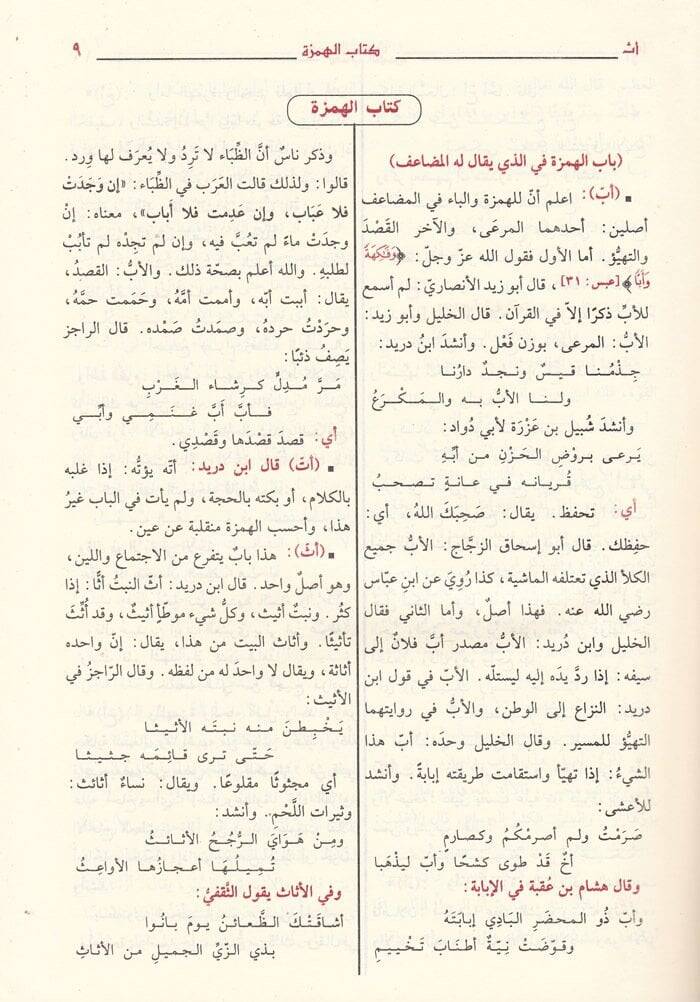 أث
كتاب الهمزة
٩
كتاب الهمزة
(باب الهمزة في الذي يقال له المضاعف)
▪ (أبّ): اعلم أنّ للهمزة والباء في المضاعف
أصلين: أحدهما المرعَى، والآخر القَصْدَ
والتهيُّؤ. أما الأول فقول الله عزّ وجلّ: ﴿وَفَٰكِهَةً
وَأَبًّا﴾ [عبس: ٣١]، قال أبو زيد الأنصاريّ: لم أسمع
للأبِّ ذكرًا إلاّ في القرآن. قال الخليل وأبو زيد:
الأبُّ: المرعى، بوزن فَعْل. وأنشدَ ابنُ دريد:
جِذْمُنا قيسٌ ونجدٌ دارُنا
ولنا الأبُّ به والمَكْرَعُ
وأنشدَ شُبيل بن عَزْرَة لأبي دواد:
يَرعى بروْضِ الحَزْنِ من أبِّهِ
قُريانه في عانةٍ تصحبُ
أي: تحفظ. يقال: صَحِبَكَ اللهُ، أي:
حفِظك. قال أبو إسحاق الزجّاج: الأبُّ جميع
الكلأ الذي تعتلفه الماشية، كذا رُوِيَ عن ابنِ عبّاس
رضي الله عنه. فهذا أصلٌ، وأما الثاني فقال
الخليل وابن دُريد: الأبُّ مصدر أبَّ فلانٌ إلى
سيفه: إذا ردَّ يدَه إليه ليستلّه. الأبّ في قول ابن
دريد: النزاع إلى الوطن، والأبُّ في روايتهما
التهيُّؤ للمسير. وقال الخليل وحدَه: أبّ هذا
الشيءُ: إذا تهيّأ واستقامت طريقته إبابةً. وأنشد
للأعشى:
صَرَمْتُ ولم أصرمْكُمُ وكصارمٍ
أخٌ قَدْ طوى كشحًا وأبّ ليذهَبا
وقال هشام بن عُقبة في الإبابة:
وأبّ ذُو المحضَرِ البَادِي إبابَتَهُ
وقوّضَتْ نِيّةٌ أطنابَ تَخْييمِ
وذكر ناسٌ أنَّ الظِّبَاء لا تَرِدُ ولا يُعرَف لها وِرد.
قالوا: ولذلك قالت العَرَب في الظِّبَاء: «إن وَجَدَتْ
فلا عَبَاب، وإن عَدِمت فلا أباب»، معناه: إنْ
وجدَتْ ماءً لم تعُبَّ فيه، وإن لم تجِدْه لم تأبُبْ
لطلبهِ. والله أعلم بصحّة ذلك. والأبُّ: القصدُ،
يقال: أببت أبّه، وأممت أمَّهُ، وحَمَمت حمَّهُ،
وحرَدْتُ حرده، وصمدتُ صَمْده. قال الراجز
يَصِفُ ذئبًا:
مَرَّ مُدِلٌّ كرِشاء الغَرْبِ
فأبَّ أبَّ غنَمِي وأبّي
أي: قصدَ قصْدَها وقَصْدِي.
▪ (أتّ) قال ابن دريد: أتّه يؤتُّه: إذا غلبه
بالكلام، أو بكته بالحجة، ولم يأت في الباب غيرُ
هذا، وأحسب الهمزة منقلبة عن عين.
▪ (أثّ): هذا بابٌ يتفرع من الاجتماع واللين،
وهو أصلٌ واحد. قال ابن دريد: أثّ النبتُ أثًّا: إذا
كثُر. ونبتٌ أثيث، وكلُّ شيء موطَّإ أثيثٌ، وقد أُثِّثَ
تأثيثًا. وأثاث البيت من هذا، يقال: إنّ واحده
أثاثة، ويقال لا واحدَ له من لفظه. وقال الرّاجزُ في
الأثيث:
يَخْبِطنَ منه نبتَه الأثيثا
حَتّى ترى قائِمَه جثيثا
أي مجثوثًا مقلوعًا. ويقال: نساءٌ أثائث:
وثيرات اللَّحْم. وأنشد:
ومِنْ هَوَايَ الرُّجُحُ الأثائثُ
تُمِيلُهَا أعجازُها الأواعِثُ
وفي الأثاث يقول الثَّقفيُّ:
أشاقَتْكَ الظَّعائنُ يومَ بانُوا
بذي الزّيِّ الجميلِ من الأثاثِ